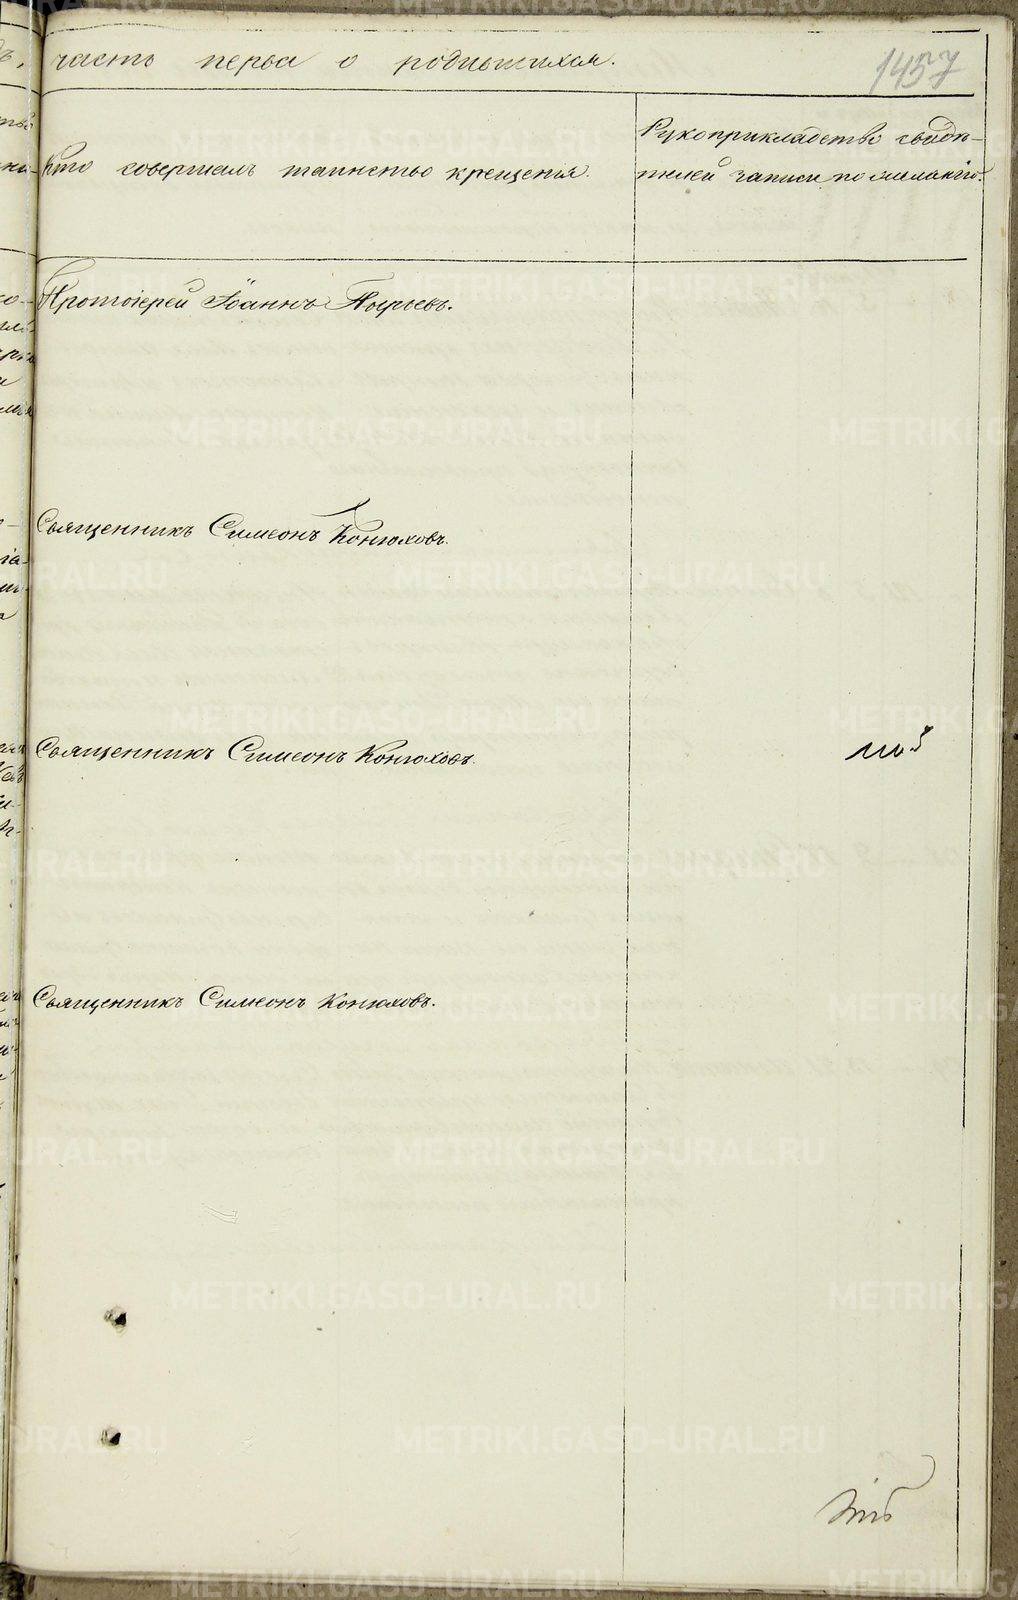 часть перва о родившихся.
1457
Кто совершалъ таинство крещенія.
Рукоприкладство свидѣ-
телей записи по желанію.
Протоіерей Іоаннъ Пырьевъ.
Священникъ Симеонъ Конюховъ.
Священникъ Симеонъ Конюховъ.
Священникъ Симеонъ Конюховъ.
METRIKI.GASO-URAL.RU